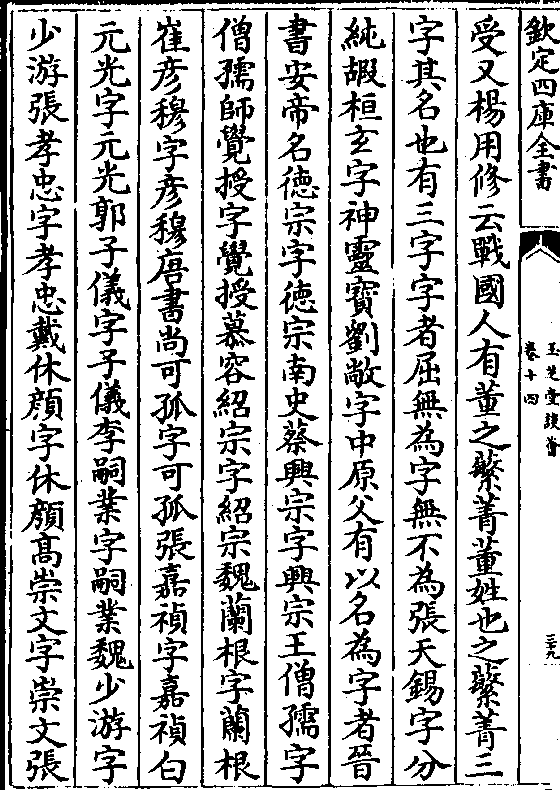 欽定四庫全書
玉芝堂談薈
卷十四
三十九
受又楊用修云戰國人有董之蘩菁董姓也之蘩菁三
字其名也有三字字者屈無為字無不為張天錫字公
純嘏桓玄字神靈寶劉敞字中原父有以名為字者晉
書安帝名德宗字德宗南史蔡興宗字興宗王僧孺字
僧孺師覺授字覺授慕容紹宗字紹宗魏蘭根字蘭根
崔彦穆字彦穆唐書尚可孤字可孤張嘉禎字嘉禎白
元光字元光郭子儀字子儀李嗣業字嗣業魏少游字
少游張孝忠字孝忠戴休顔字休顔髙崇文字崇文張